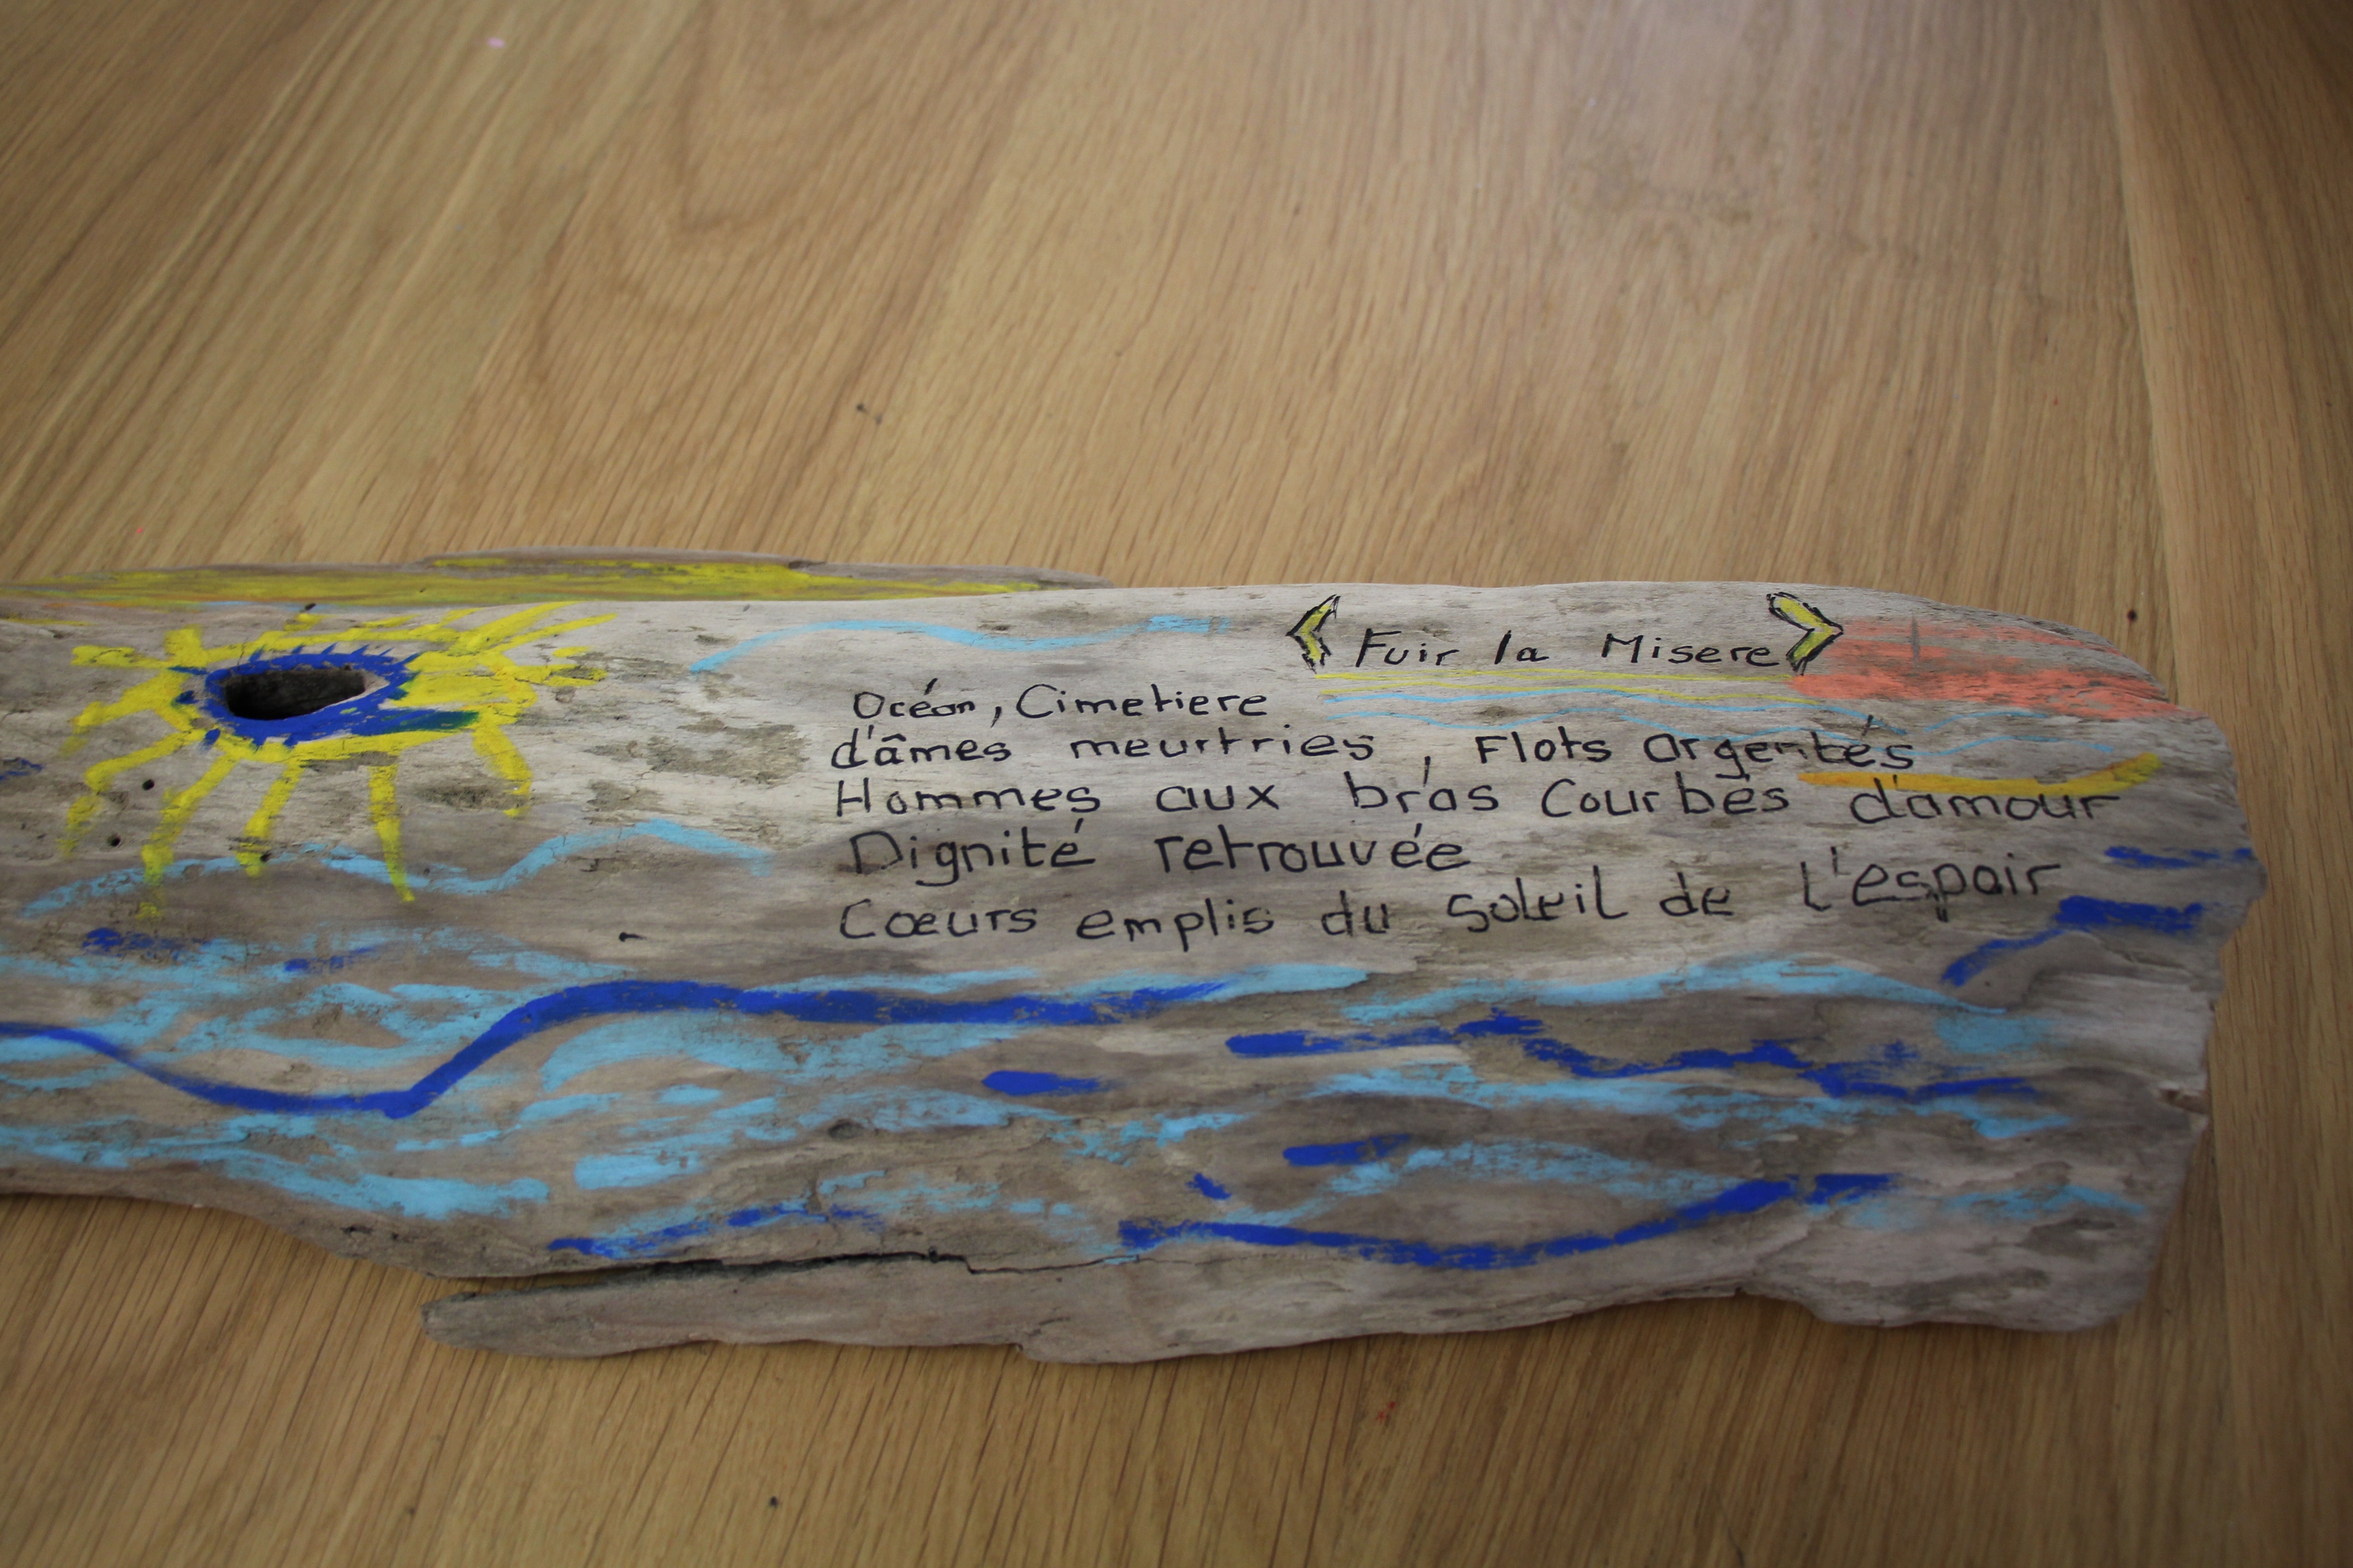 < Fuir la Misere >
Océan, Cimetiere
d'âmes meurtries, Flots argentés
Hommes aux bras Courbés d'amour
Dignité retrouvée
Cœurs emplis du soleil de l'espoir